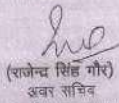 (राजेन्द्र सिंह गौर)
अवर सचिव